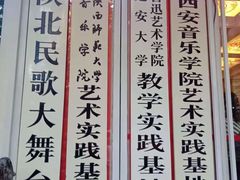 陕北民歌大舞台
陕西师范大学
音乐学院
艺术实践基
鲁迅艺术学院
延安大学
教学实践基
西安音乐学院艺术实践基地